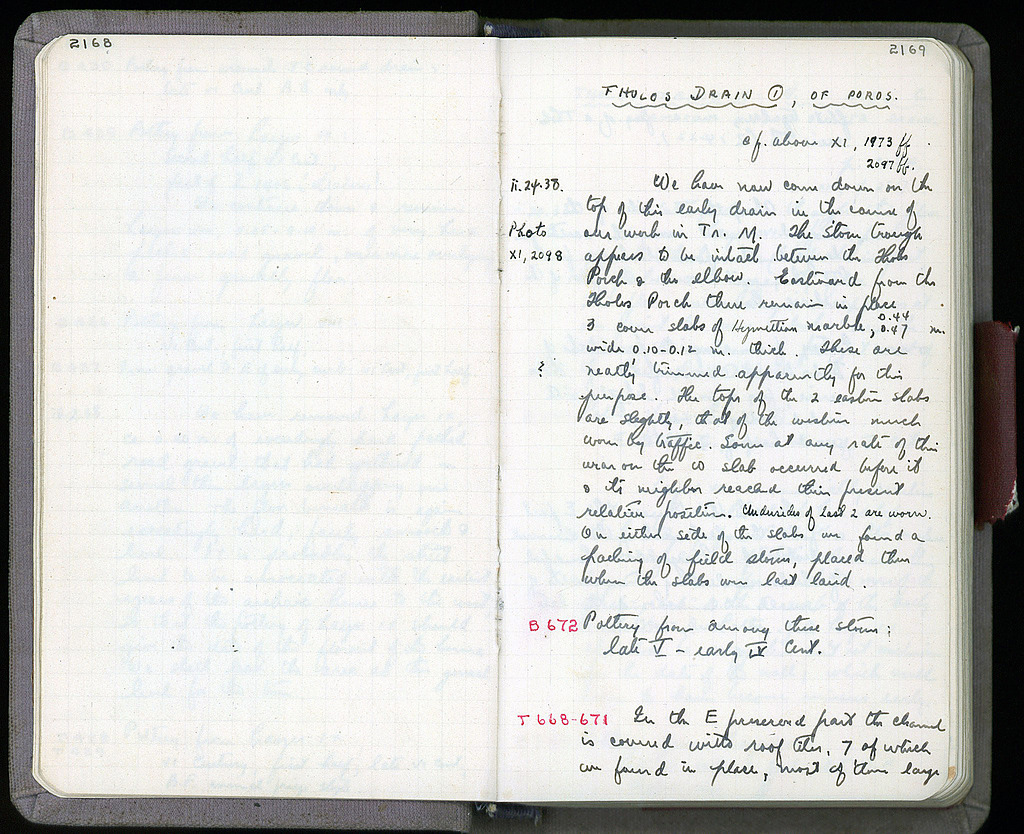 2168
2169
THOLOS DRAIN ①, OF POROS.
cf. above XI, 1973 ff.
2097 ff.
ii.24.38. We have now come down on the
top of this early drain in the course of
Photo our work in Tr. M. The stone trough
XI, 2098 appears to be intact between the Tholos
Porch & the elbow. Eastward from the
Tholos Porch there remain in place
3 cover slabs of Hymettian marble, 0.44 0.47 m.
wide 0.10-0.12 m. thick. These are
? neatly trimmed apparently for this
purpose. The tops of the 2 eastern slabs
are slightly, that of the western much
worn by traffic. Some at any rate of this
wear on the W slab occurred before it
& its neighbor reached their present
relative position. Undersides of last 2 are worn.
On either side of the slabs we found a
packing of field stones, placed there
when the slabs were last laid.
B 672 Pottery from among these stones:
late V - early IV Cent.
T 668-671 In the E preserved part the channel
is covered with roof tiles, 7 of which
we found in place, most of them large